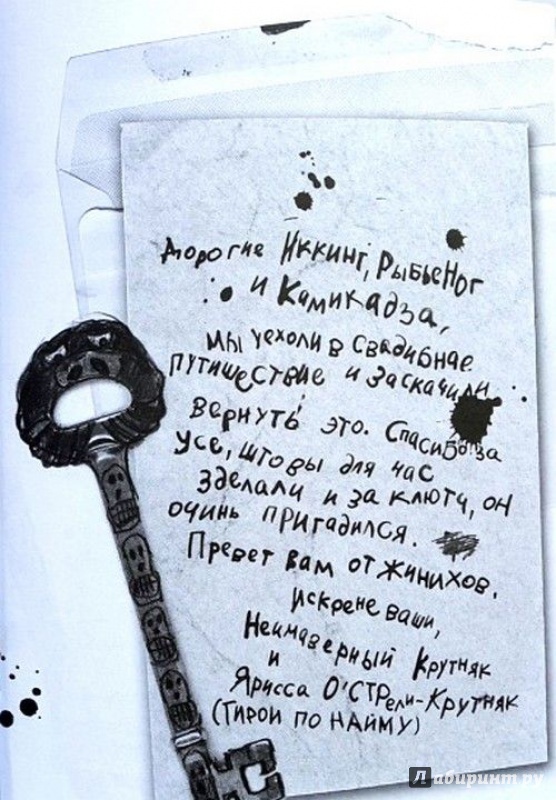 Дорогие Иккинг, Рыбьеног
и Камикадза,
мы уехоли в Свадибнае
путишествие и заскачили
вернуть это. Спасибо за
усе, што вы для нас
зделали и за клютч, он
очинь пригадился.
Превет вам от жинихов.
искрене ваши,
Неимаверный Крутняк
и
Ярисса О'Стрели-Крутняк
(Гирои по найму)
Лабиринт.ру